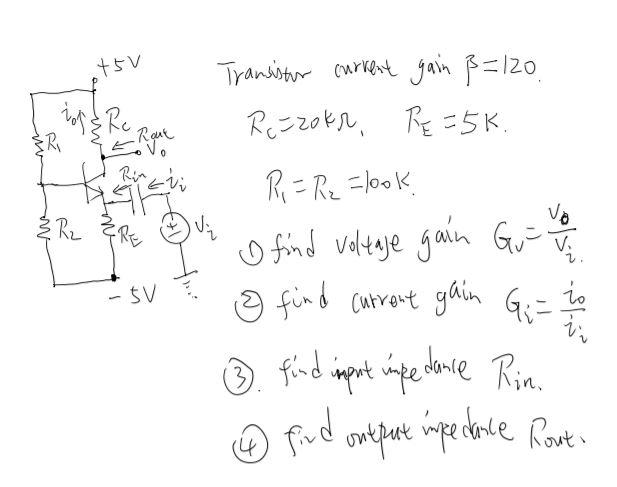 +5V
i₀↑
R_C
R₁
Rout
V₀
Rin
i_i
R₂
R_E
V_i
-5V
Transistor current gain β=120.
R_C=20kΩ, R_E=5K.
R₁=R₂=100K.
① find voltage gain G_v=V₀/V_i.
② find current gain G_i=i₀/i_i
③. find input impedance Rin.
④ find output impedance Rout.